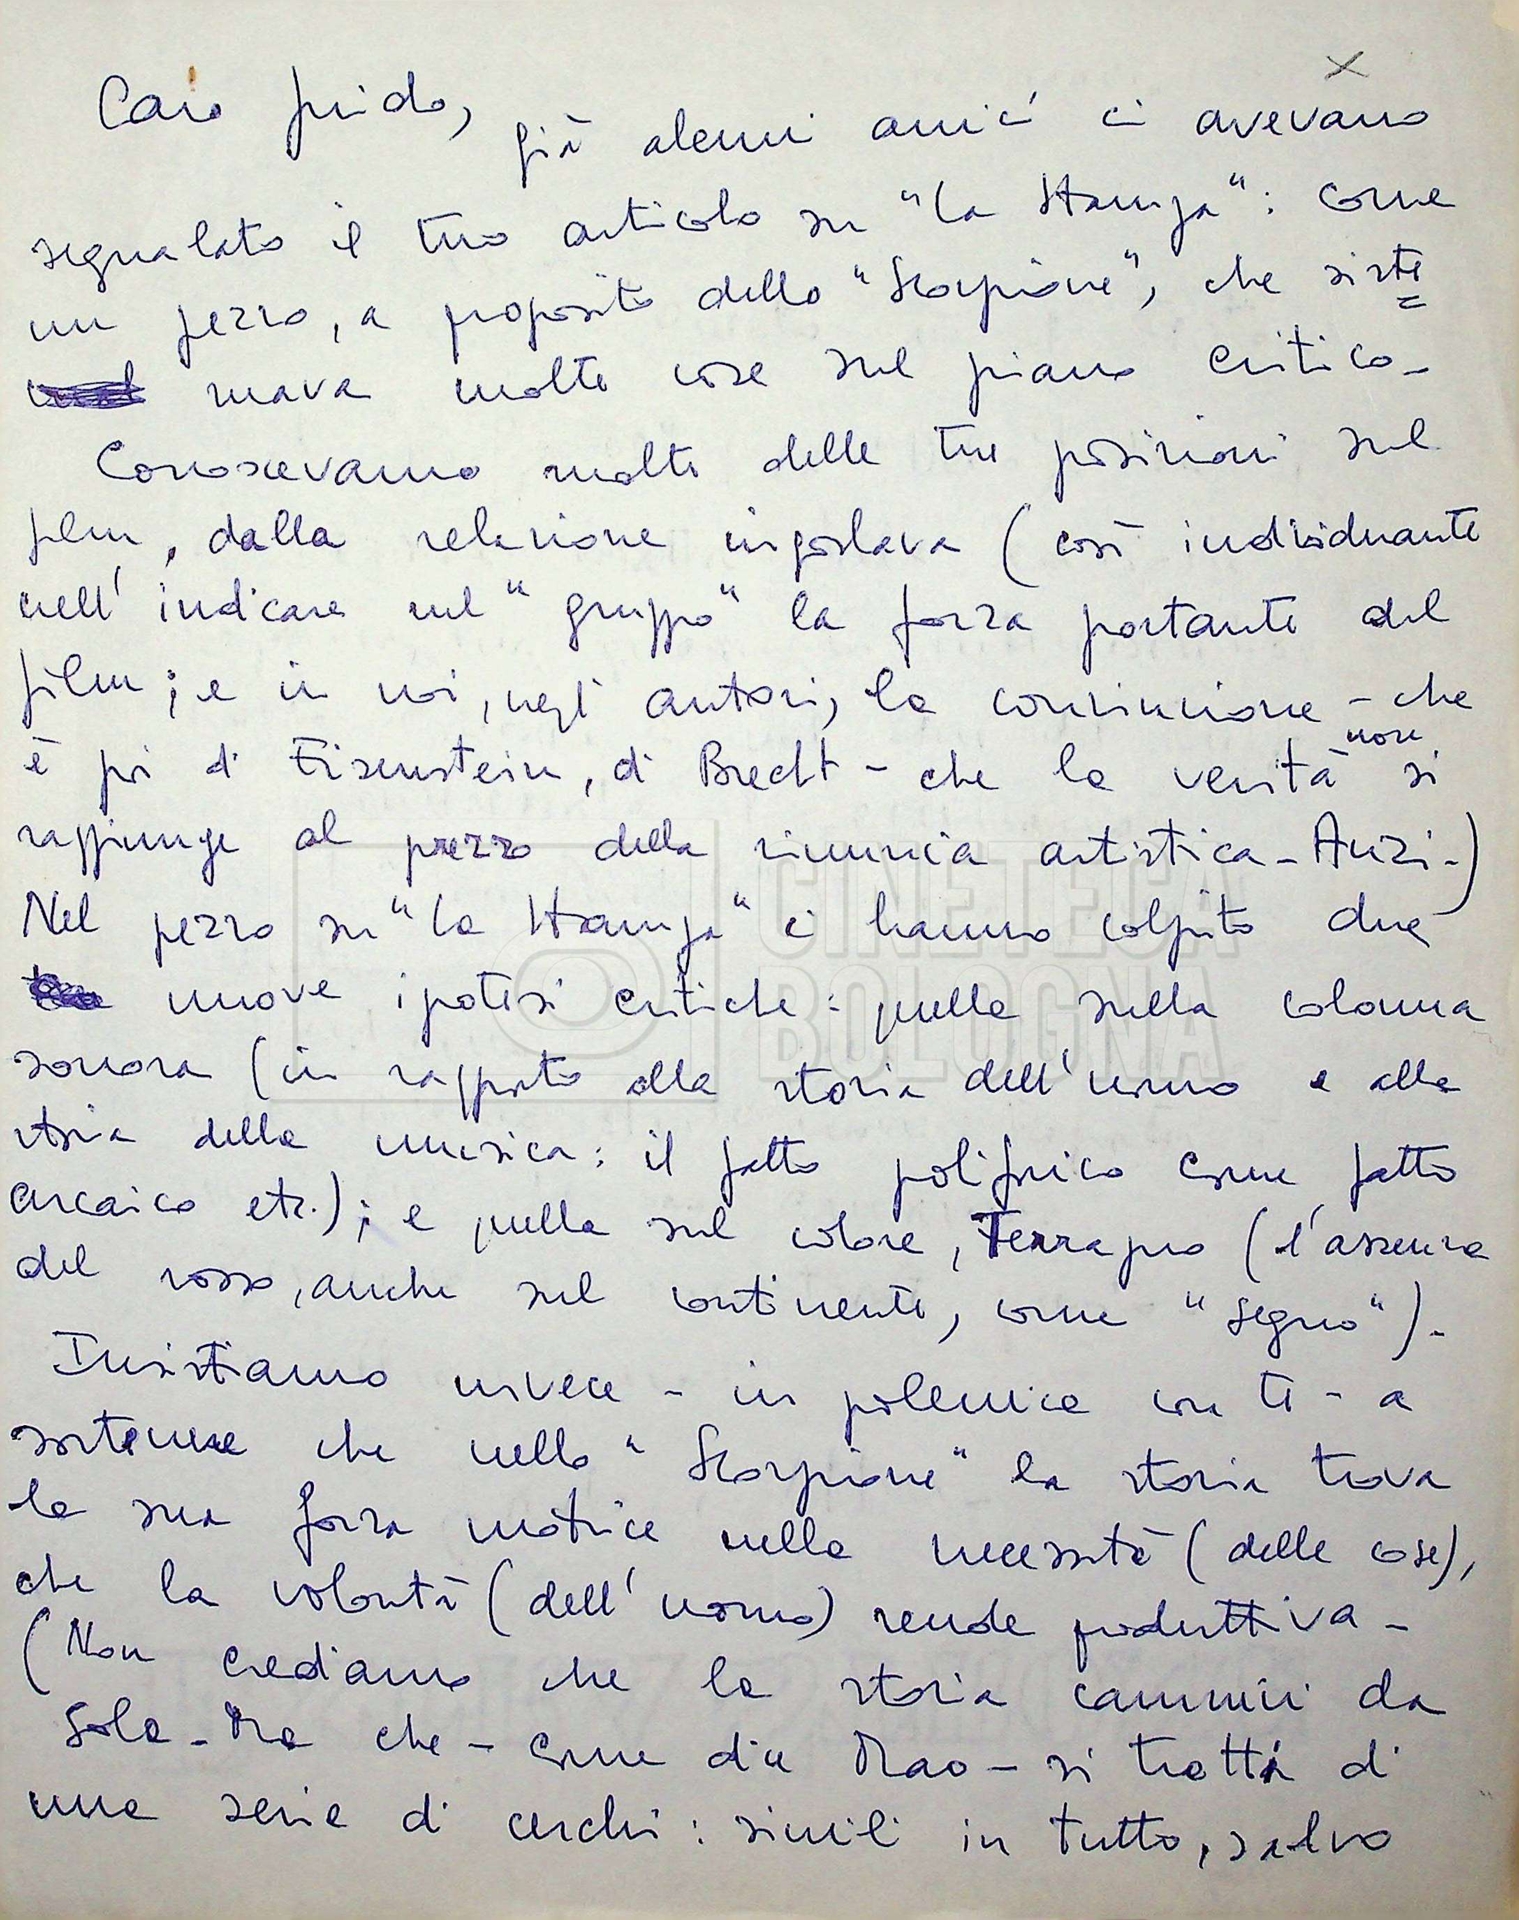 Caro Guido,
già alcuni amici ci avevano
segnalato il tuo articolo su "La Stampa": come
un pezzo, a proposito dello "Scorpione", che siste=
mava molte cose sul piano critico-
Conoscevamo molte delle tue posizioni sul
film, dalla relazione (così individuante
nell'indicare nel "gruppo" la forza portante del
film; e in noi, negli autori, la convinzione - che
è poi di Eisenstein, di Brecht - che la verità non si
raggiunge al prezzo della rinuncia artistica - Anzi -)
Nel pezzo su "La Stampa" ci hanno colpito due
nuove ipotesi critiche: quella sulla colonna
sonora (in rapporto alla storia dell'uomo e alla
storia della musica: il fatto polifonico come fatto
arcaico etc.); e quella sul colore, (l'assenza
del rosso, anche sul continente, come "segno").-
Insistiamo invece - in polemica con te - a
sostenere che nello "Scorpione" la storia trova
la sua forza motrice nella necessità (delle cose),
che la volontà (dell'uomo) rende produttiva -
(Non crediamo che la storia cammini da
sola - Ma che - come dice Mao - si tratti di
una serie di cerchi: simili in tutto, salvo
CINETECA
BOLOGNA